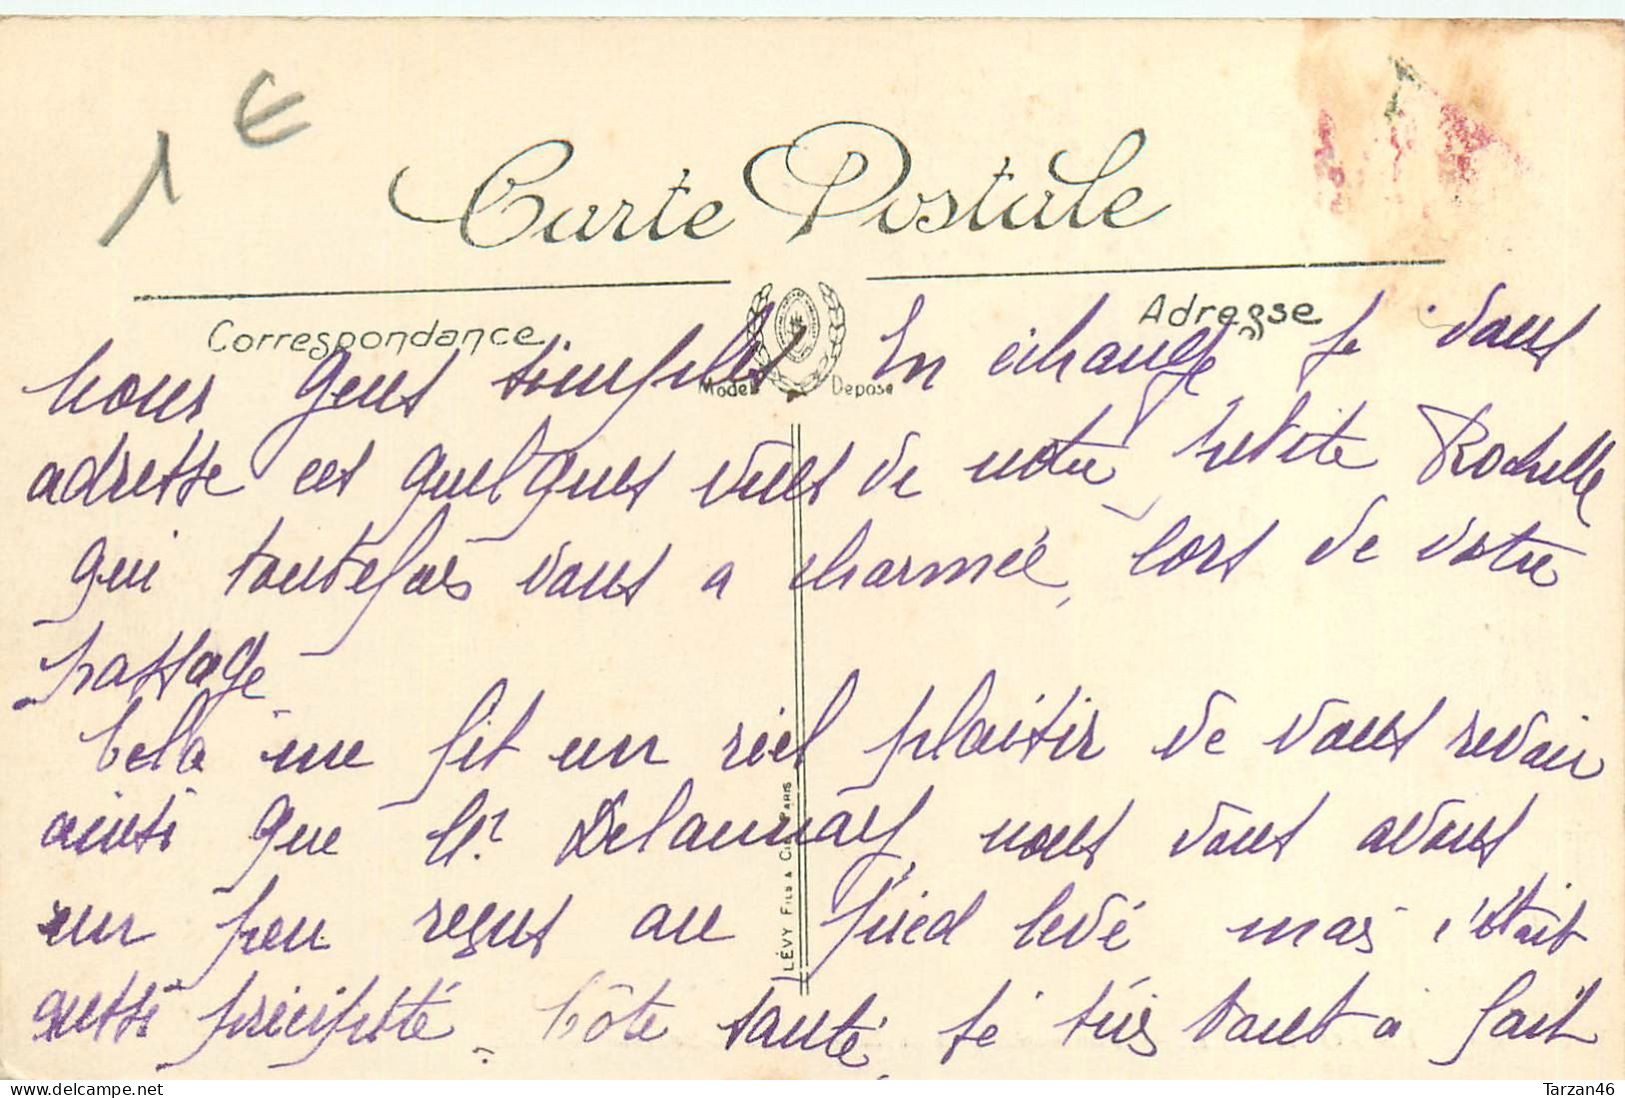 1 €
Carte Postale
Correspondance
Adresse
Modèle Déposé
nous gens simples. En échange je vous
adresse ces quelques vues de notre petite Rochelle
qui toutefois vous a charmée, lors de votre
passage
Cela me fit un réel plaisir de vous revoir
ainsi que Mr Delaunay, nous vous avons
un peu reçus au pied levé mais c'était
aussi précipité. Côté santé, je suis tout à fait
LÉVY FILS & CIE PARIS
Tarzan46